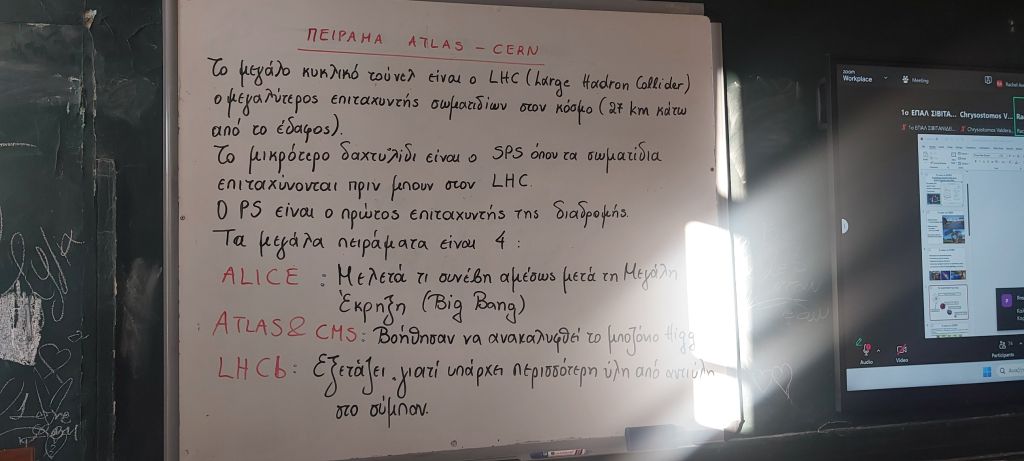 ΠΕΙΡΑΜΑ ATLAS – CERN
Το μεγάλο κυκλικό τούνελ είναι ο LHC (Large Hadron Collider)
ο μεγαλύτερος επιταχυντής σωματιδίων στον κόσμο (27 km κάτω
από το έδαφος).
Το μικρότερο δαχτυλίδι είναι ο SPS όπου τα σωματίδια
επιταχύνονται πριν μπουν στον LHC.
Ο PS είναι ο πρώτος επιταχυντής της διαδρομής.
Τα μεγάλα πειράματα είναι 4 :
ALICE : Μελετά τι συνέβη αμέσως μετά τη Μεγάλη
Έκρηξη (Big Bang)
ATLAS & CMS : Βοήθησαν να ανακαλυφθεί το μποζόνιο Higg
LHCb : Εξετάζει γιατί υπάρχει περισσότερη ύλη από αντιύλη
στο σύμπαν.
zoom
Workplace
Meeting
1ο ΕΠΑΛ ΣΙΒΙΤΑ... Chrysostomos V...
1ο ΕΠΑΛ ΣΙΒΙΤΑΝΙΔΕΙ... Chrysostomos Valdera
Audio
Video
Participants
74